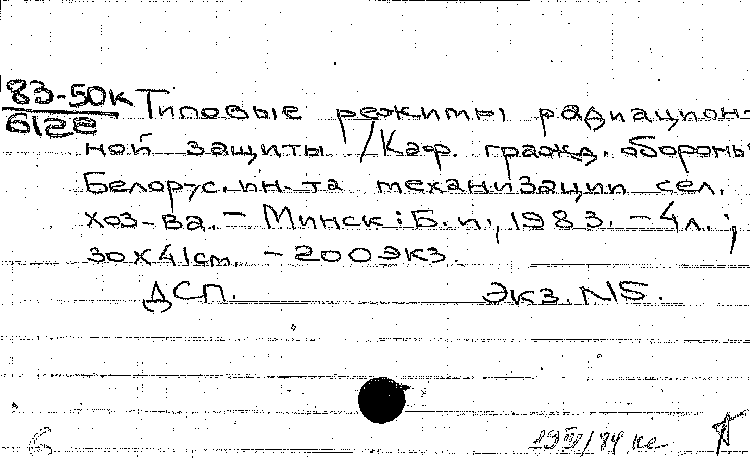 83-50к Типовые режимы радиацион-
6128 ной защиты /Каф. гражд. обороны
Белорус. ин-та механизации сел.
хоз-ва. – Минск: Б. и., 1983. – 4 л.;
30X41 см. – 200 экз.
ДСП. Экз. N5.
6